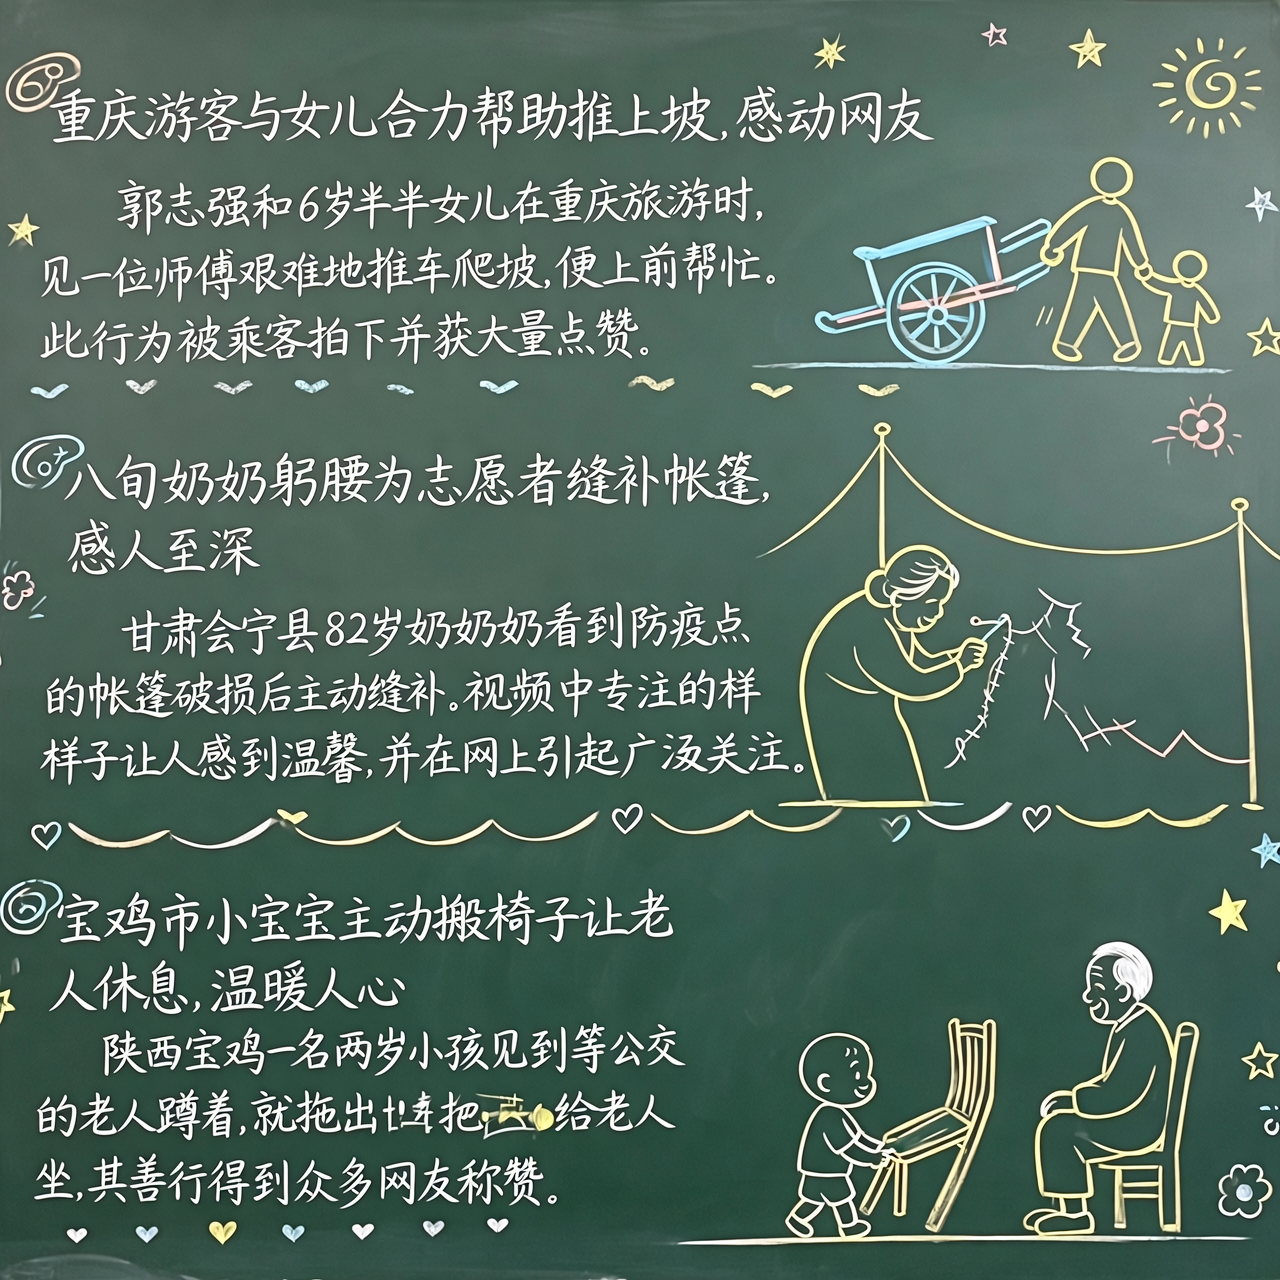 重庆游客与女儿合力帮助推上坡,感动网友
郭志强和6岁半半女儿在重庆旅游时,
见一位师傅艰难地推车爬坡,便上前帮忙。
此行为被乘客拍下并获大量点赞。
八旬奶奶躬腰为志愿者缝补帐篷,
感人至深
甘肃会宁县82岁奶奶奶看到防疫点
的帐篷破损后主动缝补。视频中专注的样
样子让人感到温馨,并在网上引起广泛关注。
宝鸡市小宝宝主动搬椅子让老
人休息,温暖人心
陕西宝鸡一名两岁小孩见到等公交
的老人蹲着,就拖出 把 给老人
坐,其善行得到众多网友称赞。